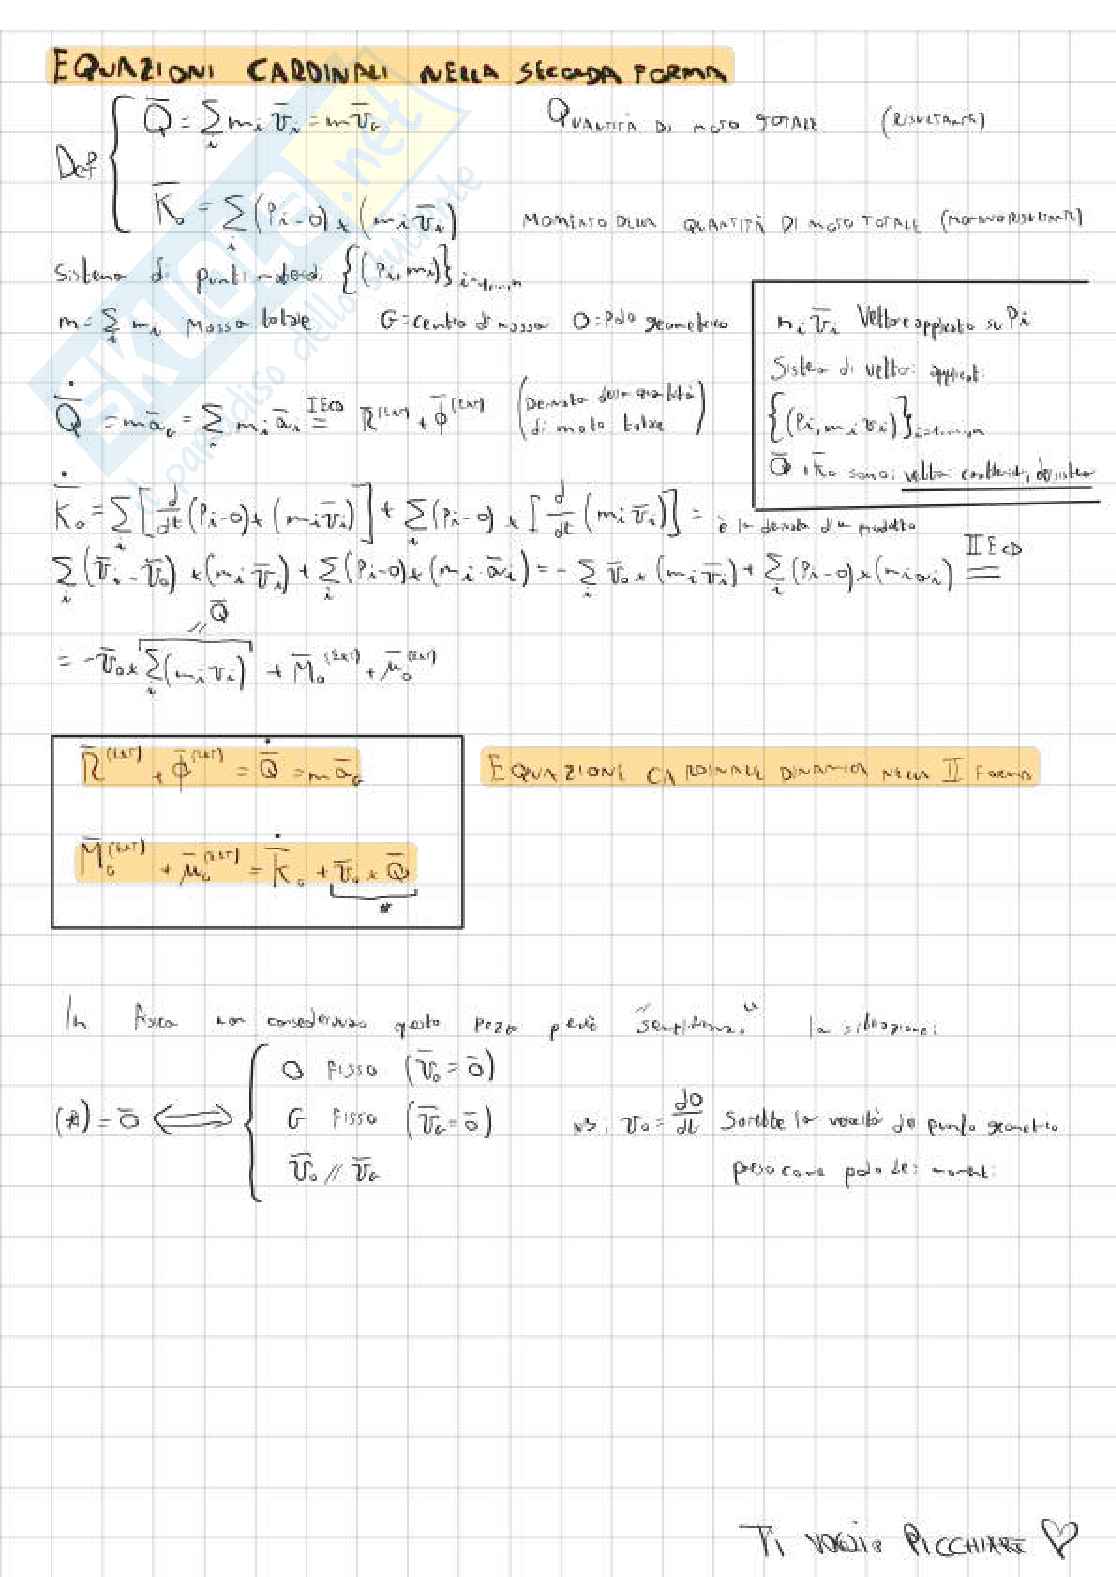 EQUAZIONI CARDINALI NELLA SECONDA FORMA
Def { Q̄ = Σᵢ mᵢ v̄ᵢ = m v̄_G QUANTITÀ DI MOTO TOTALE (RISULTANTE)
K̄ₒ = Σᵢ (Pᵢ-O) × (mᵢ v̄ᵢ) MOMENTO DELLA QUANTITÀ DI MOTO TOTALE (MOMENTO RISULTANTE)
Sistema di punti materiali {(Pᵢ, mᵢ)} i=1,...,n
m = Σᵢ mᵢ Massa totale G = centro di massa O = Polo geometrico
mᵢ v̄ᵢ Vettore applicato su Pᵢ
Sistema di vettori applicati
{(Pᵢ, mᵢ v̄ᵢ)} i=1,...,n
Q̄, K̄ₒ sono i vettori caratteristici del sistema
Q̄˙ = m ā_G = Σᵢ mᵢ āᵢ =(I ECD) R̄^(EXT) + φ̄^(EXT) (Derivata della quantità di moto totale)
K̄˙ₒ = Σᵢ [d/dt (Pᵢ-O) × (mᵢ v̄ᵢ)] + Σᵢ (Pᵢ-O) × [d/dt (mᵢ v̄ᵢ)] = è la derivata di un prodotto
Σᵢ (v̄ᵢ - v̄ₒ) × (mᵢ v̄ᵢ) + Σᵢ (Pᵢ-O) × (mᵢ āᵢ) = - Σᵢ v̄ₒ × (mᵢ v̄ᵢ) + Σᵢ (Pᵢ-O) × (mᵢ aᵢ) =(II ECD)
// Q̄
= -v̄ₒ × Σᵢ (mᵢ vᵢ) + M̄ₒ^(EXT) + μ̄ₒ^(EXT)
R̄^(EXT) + φ̄^(EXT) = Q̄˙ = m ā_G
EQUAZIONE CARDINALE DINAMICA NELLA II FORMA
M̄ₒ^(EXT) + μ̄ₒ^(EXT) = K̄˙ₒ + v̄ₒ × Q̄
*
In fisica non consideravamo questo pezzo perché "semplificavamo" la situazione:
(*) = ō ⟺ { O FISSO (v̄ₒ = ō)
G FISSO (v̄_G = ō)
v̄ₒ // v̄_G
NB: vₒ = dO/dt Sarebbe la velocità del punto geometrico
preso come polo dei momenti
TI VOGLIO PICCHIARE ♡
SKUOLA.net
il paradiso dello studente